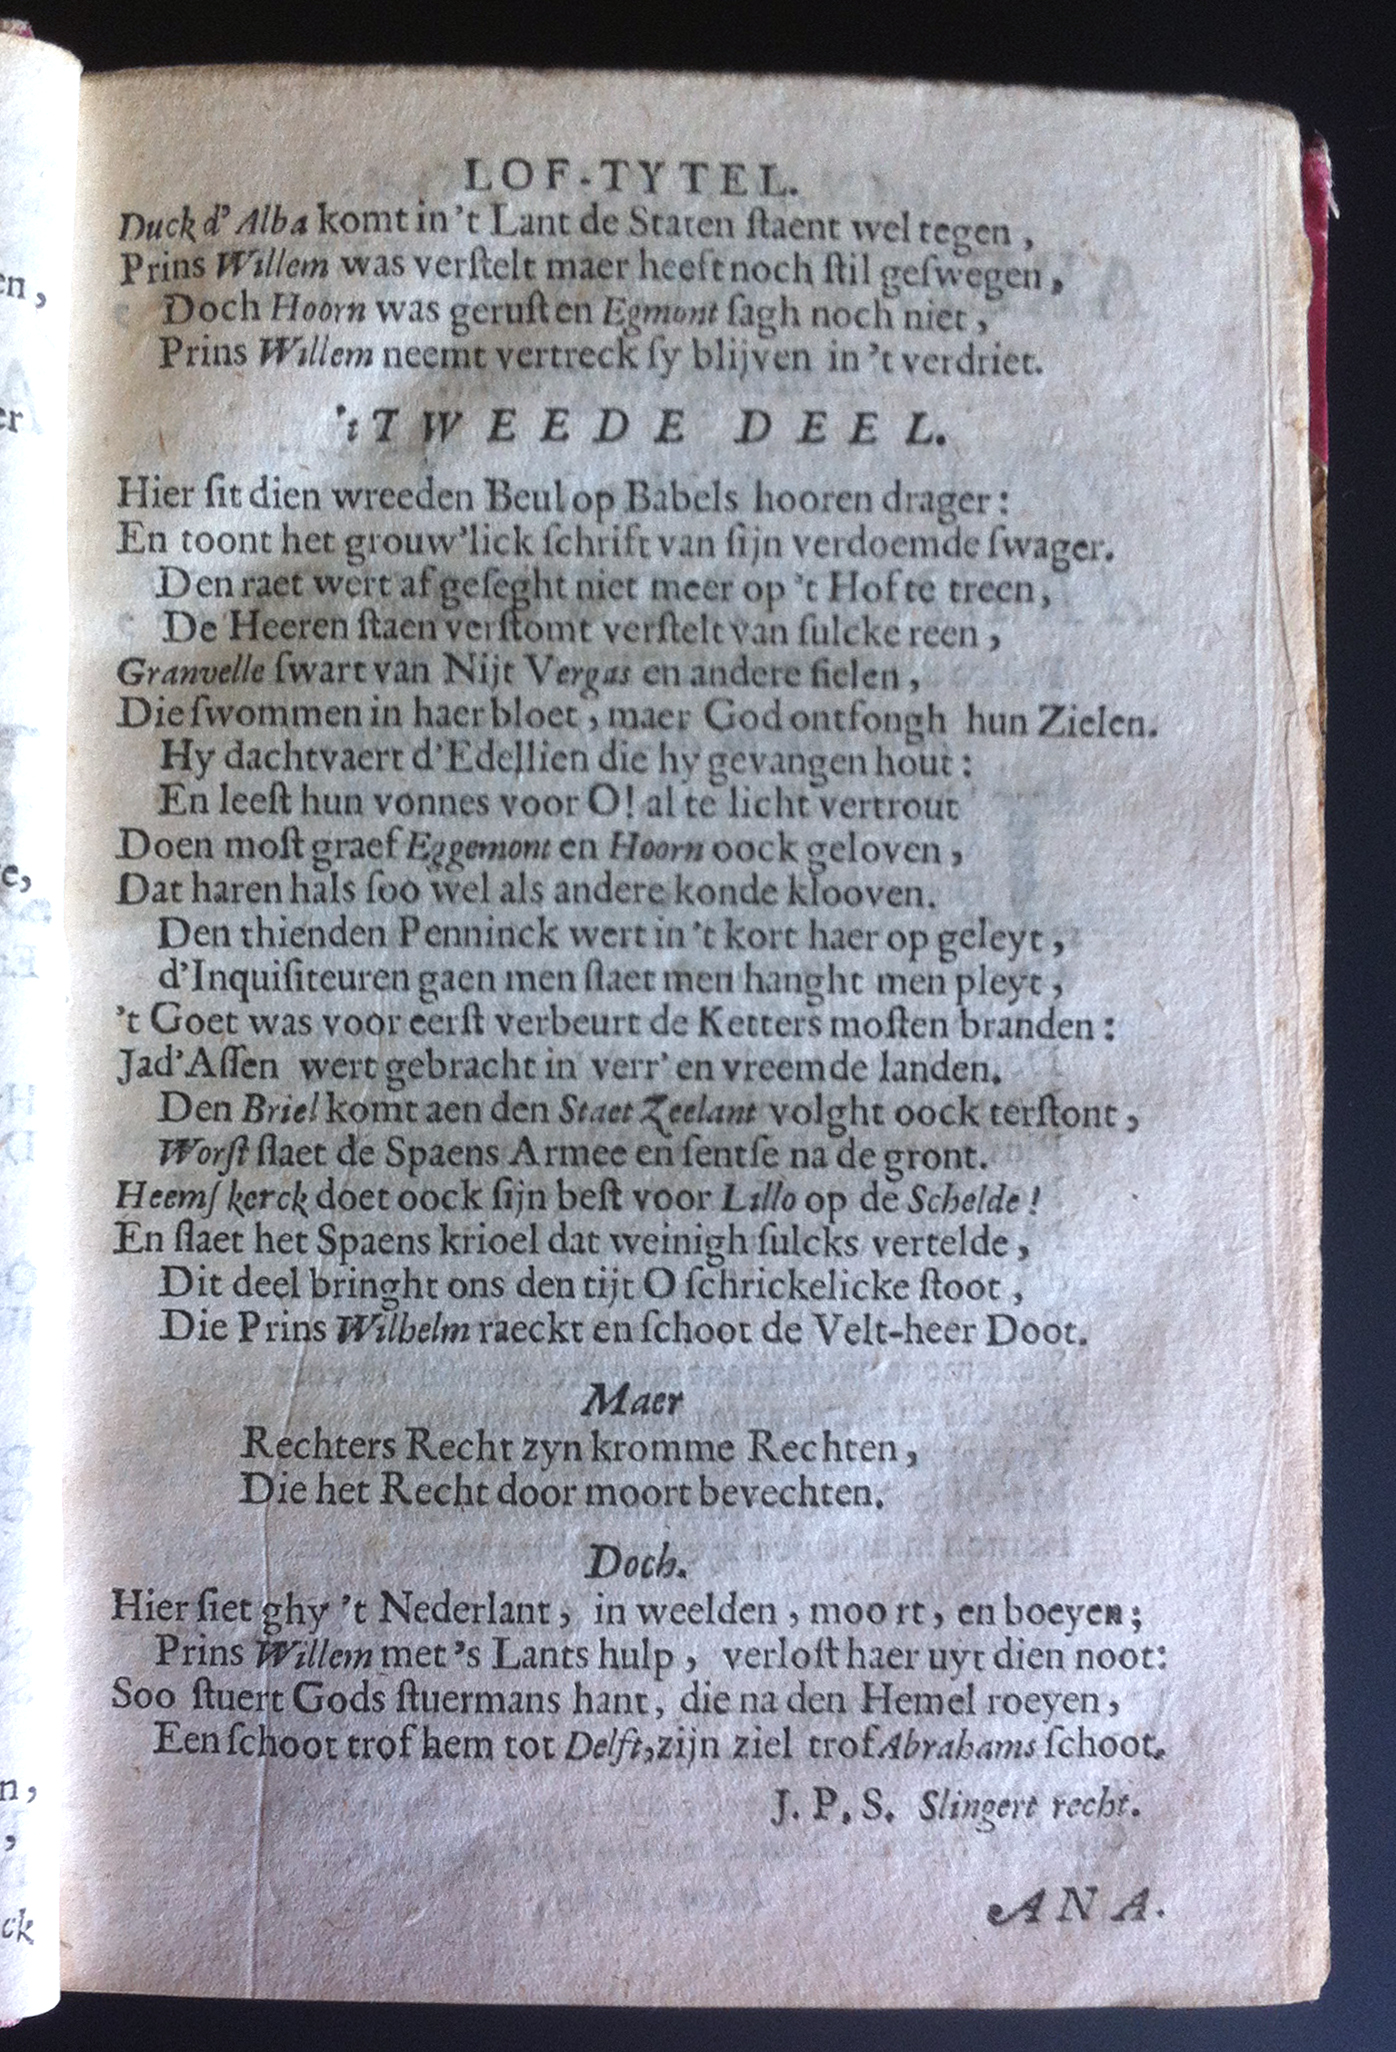 en,
er
e,
n,
,
ck
LOF-TYTEL.
Duck d' Alba komt in 't Lant de Staten ſtaent wel tegen,
Prins Willem was verſtelt maer heeft noch ſtil geſwegen,
Doch Hoorn was geruſt en Egmont ſagh noch niet,
Prins Willem neemt vertreck ſy blijven in 't verdriet.
't TWEEDE DEEL.
Hier ſit dien wreeden Beul op Babels hooren drager:
En toont het grouw'lick ſchrift van ſijn verdoemde ſwager.
Den raet wert af geſeght niet meer op 't Hof te treen,
De Heeren ſtaen verſtomt verſtelt van ſulcke reen,
Granvelle ſwart van Nijt Vergas en andere fielen,
Die ſwommen in haer bloet, maer God ontfongh hun Zielen.
Hy dachtvaert d'Edellien die hy gevangen hout:
En leeſt hun vonnes voor O! al te licht vertrout
Doen moſt graef Eggemont en Hoorn oock geloven,
Dat haren hals ſoo wel als andere konde klooven.
Den thienden Penninck wert in 't kort haer op geleyt,
d'Inquiſiteuren gaen men ſlaet men hanght men pleyt,
't Goet was voor eerſt verbeurt de Ketters moſten branden:
Jad'Aſſen wert gebracht in verr' en vreemde landen.
Den Briel komt aen den Staet Zeelant volght oock terſtont,
Worſt ſlaet de Spaens Armee en ſentſe na de gront.
Heemſkerck doet oock ſijn beſt voor Lillo op de Schelde!
En ſlaet het Spaens krioel dat weinigh ſulcks vertelde,
Dit deel bringht ons den tijt O ſchrickelicke ſtoot,
Die Prins Wilhelm raeckt en ſchoot de Velt-heer Doot.
Maer
Rechters Recht zyn kromme Rechten,
Die het Recht door moort bevechten.
Doch.
Hier ſiet ghy 't Nederlant, in weelden, moort, en boeyen;
Prins Willem met 's Lants hulp, verloſt haer uyt dien noot:
Soo ſtuert Gods ſtuermans hant, die na den Hemel roeyen,
Een ſchoot trof hem tot Delft, zijn ziel trof Abrahams ſchoot.
J. P. S. Slingert recht.
ANA.